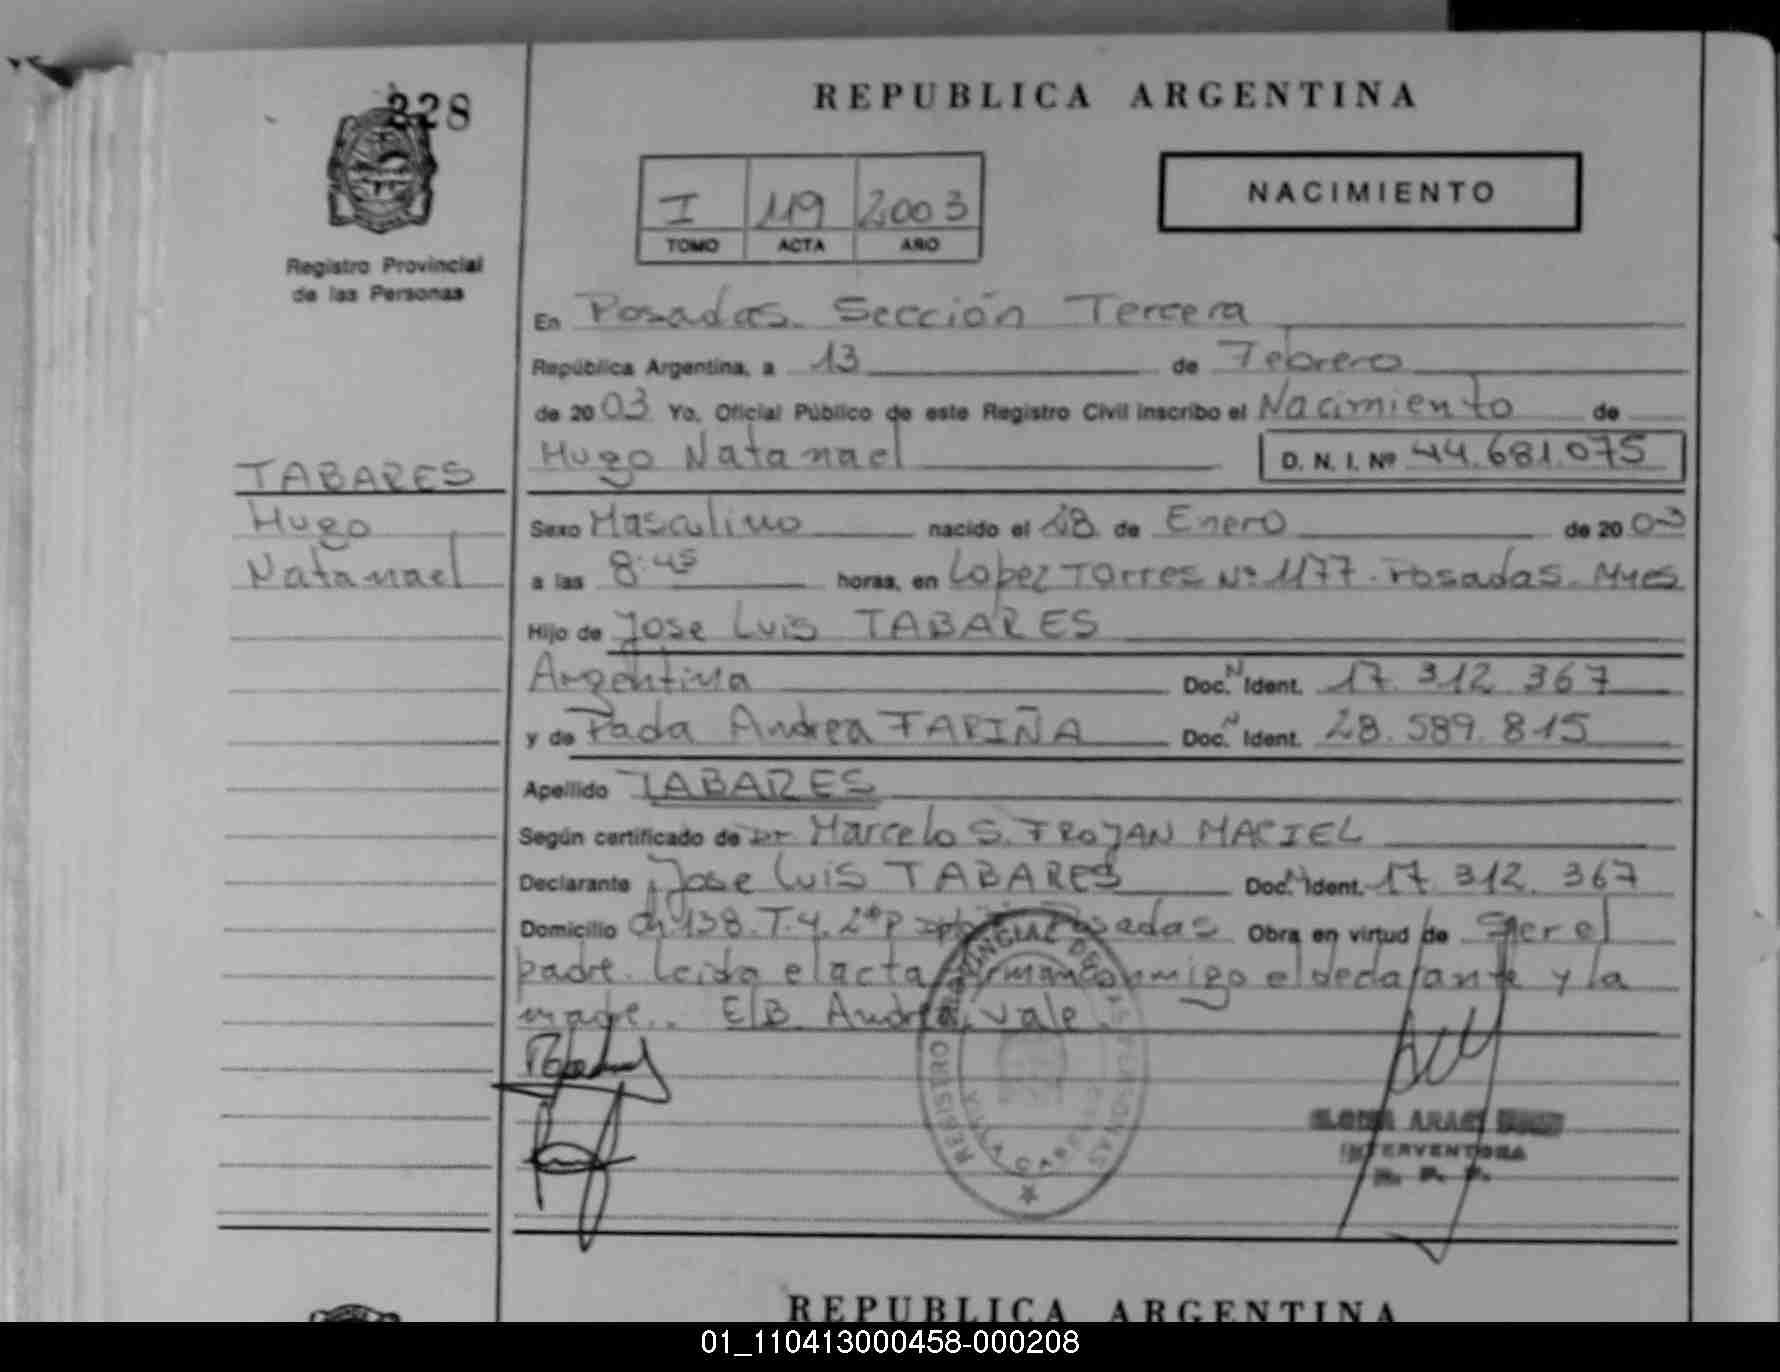 228
REPUBLICA ARGENTINA
I 119 2003
TOMO ACTA AÑO
NACIMIENTO
Registro Provincial
de las Personas
En Posadas. Sección Tercera
República Argentina, a 13 de Febrero
de 2003 Yo, Oficial Público de este Registro Civil inscribo el Nacimiento de
Hugo Natanael D. N. I. Nº 44.681.075
TABARES
Hugo
Natanael
Sexo Masculino nacido el 28 de Enero de 2003
a las 8:45 horas, en Lopez Torres Nº 1177. Posadas. Mnes
Hijo de Jose Luis TABARES
Argentina Doc. N Ident. 17.312.367
y de Paola Andrea FARIÑA Doc. N Ident. 28.589.815
Apellido TABARES
Según certificado de Dr. Marcelo S. TROJAN MACIEL
Declarante Jose Luis TABARES Doc. N Ident. 17.312.367
Domicilio Ch. 138. T.4. 2º P Posadas Obra en virtud de Ser el
padre. Leida el acta firman conmigo el declarante y la
madre.. E/B Andrea, vale.
REGISTRO PROVINCIAL DE LAS PERSONAS
INTERVENTORA
R. P. P.
REPUBLICA ARGENTINA
01_110413000458-000208